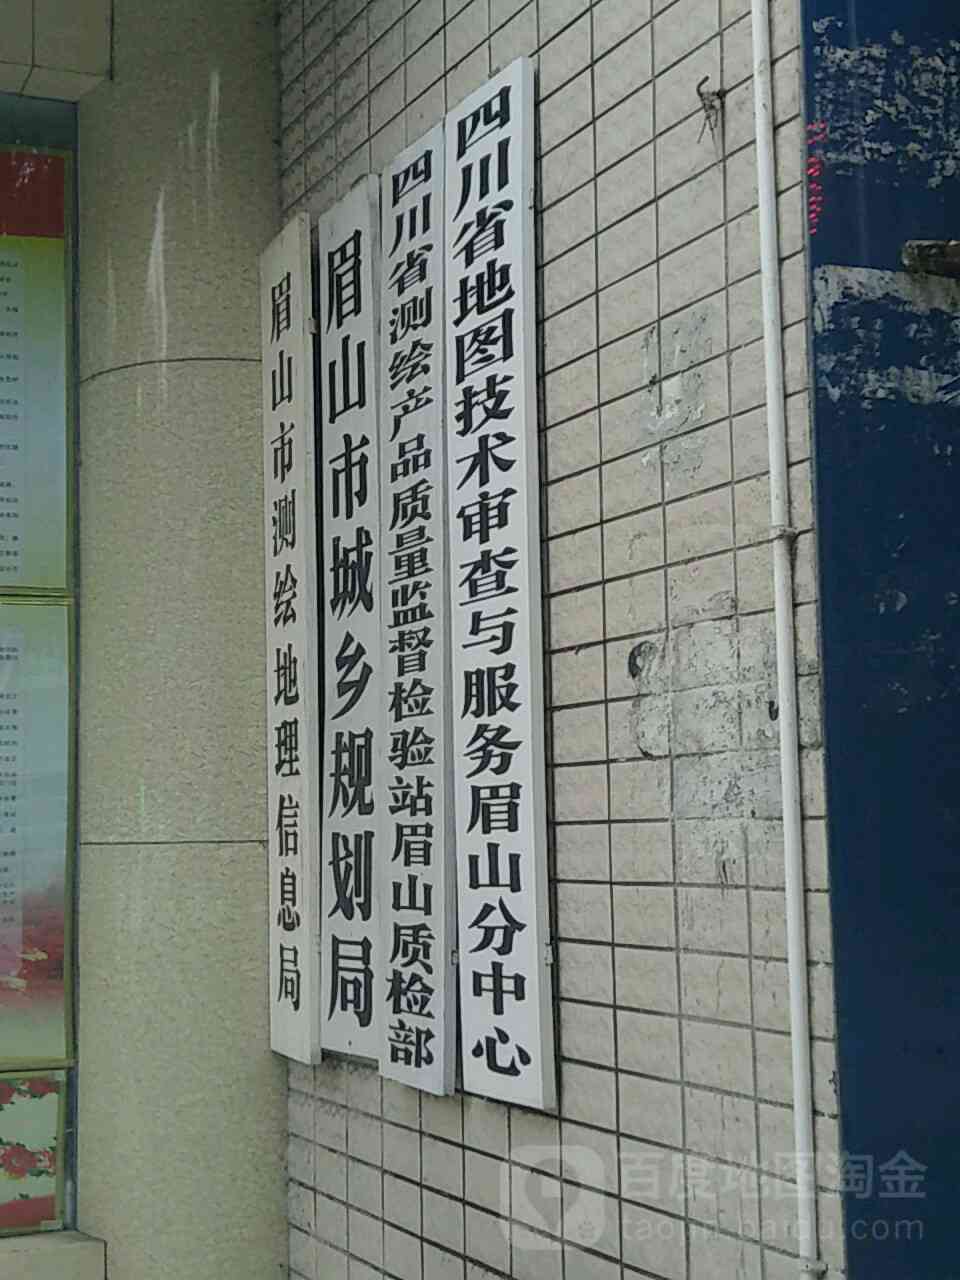 眉山市测绘地理信息局
眉山市城乡规划局
四川省测绘产品质量监督检验站眉山质检部
四川省地图技术审查与服务眉山分中心
百度地图淘金
taojin.baidu.com